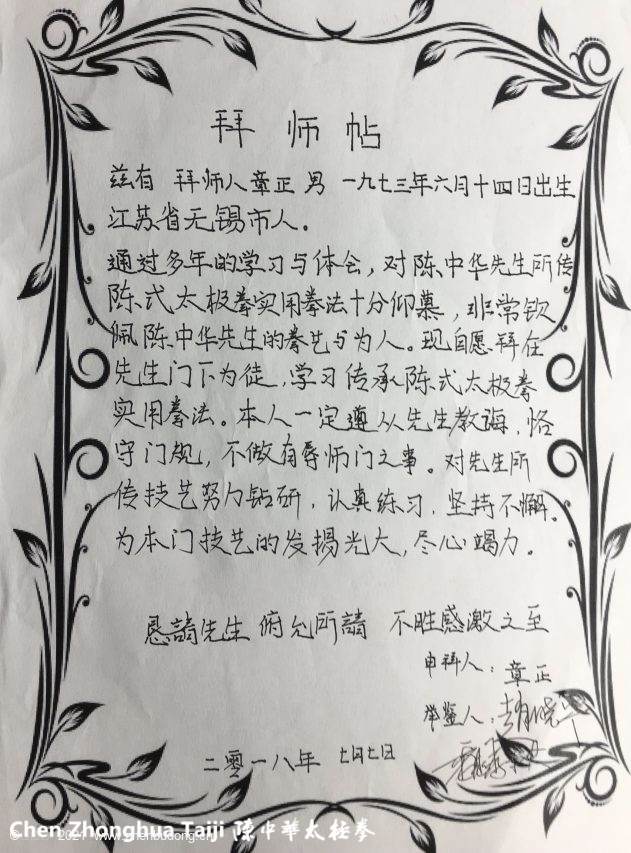 拜师帖
兹有 拜师人章正 男 一九七三年六月十四日出生
江苏省无锡市人。
通过多年的学习与体会，对陈中华先生所传
陈式太极拳实用拳法十分仰慕，非常钦
佩陈中华先生的拳艺与为人。现自愿拜在
先生门下为徒，学习传承陈式太极拳
实用拳法。本人一定遵从先生教诲，恪
守门规，不做有辱师门之事。对先生所
传技艺努力钻研，认真练习，坚持不懈。
为本门技艺的发揚光大，尽心竭力。
恳請先生 俯允所請 不胜感激之至
申拜人：章正
举鉴人：
二零一八年 七月七日
Chen Zhonghua Taiji 陳中華太極拳